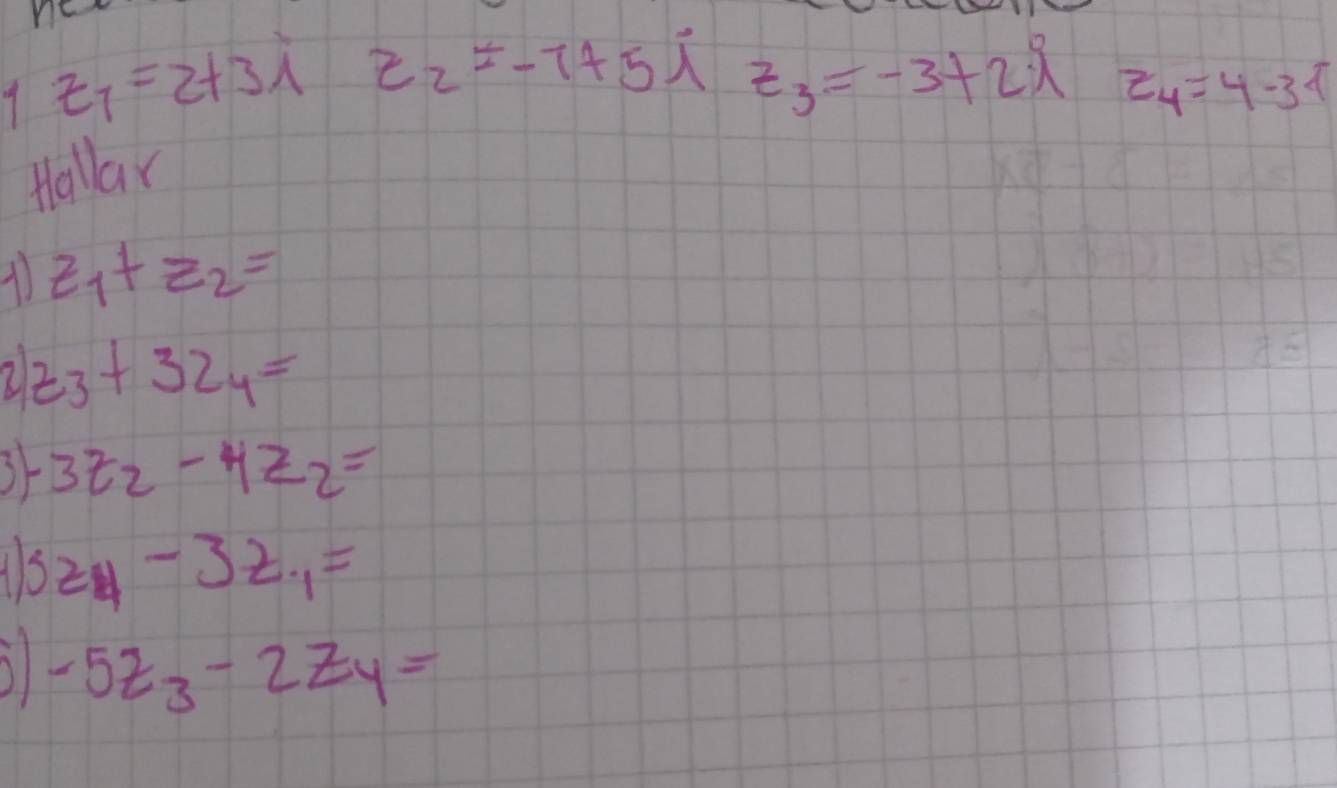 1 z₁ = 2+3i z₂ = -1+5i z₃ = -3+2i z₄ = 4-3i
Hallar
1) z₁ + z₂ =
2) z₃ + 3z₄ =
3) -3z₂ - 4z₂ =
4) 5z₄ - 3z₁ =
5) -5z₃ - 2z₄ =